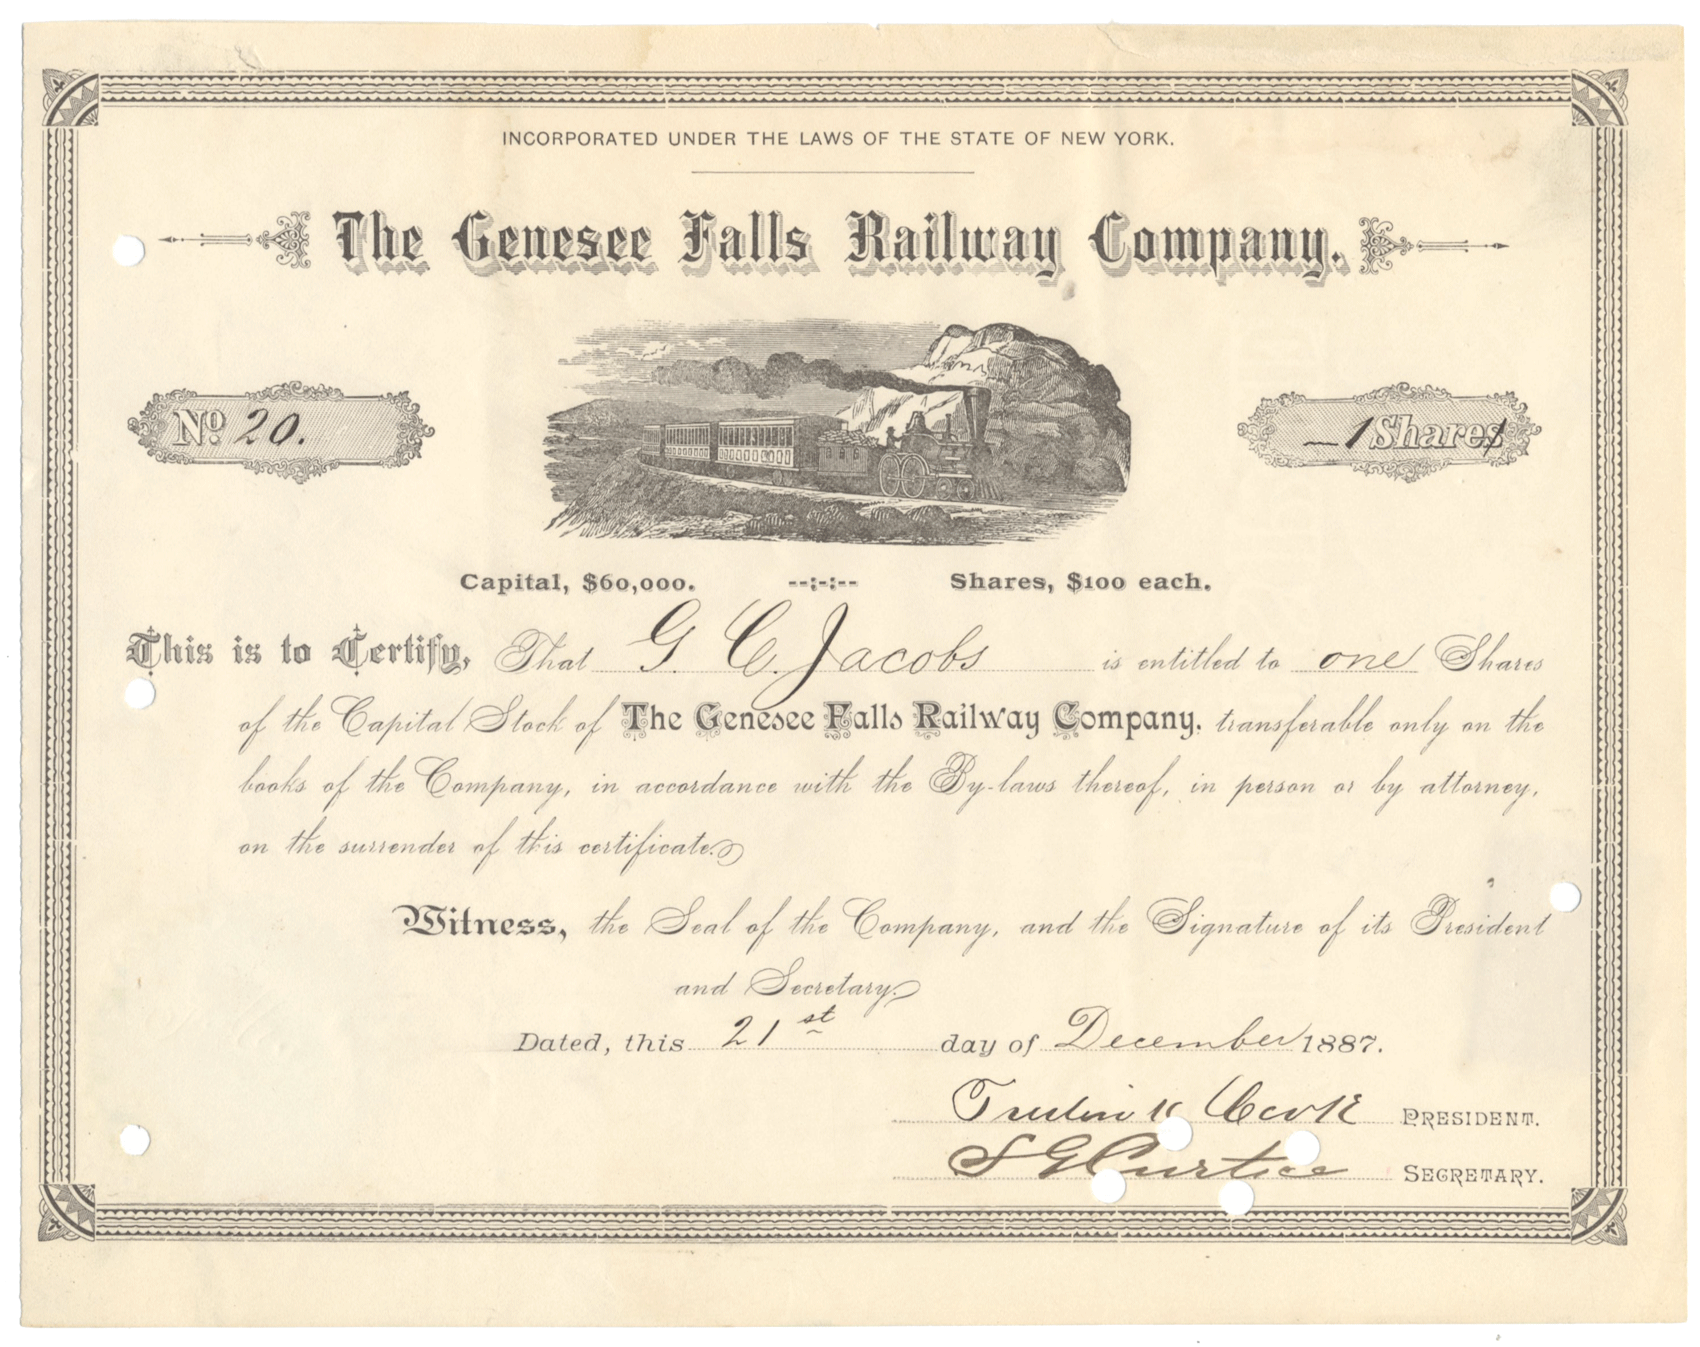 INCORPORATED UNDER THE LAWS OF THE STATE OF NEW YORK.
The Genesee Falls Railway Company.
No. 20.
1 Shares
Capital, $60,000. --:-:-- Shares, $100 each.
This is to Certify, That G. C. Jacobs is entitled to one Shares
of the Capital Stock of The Genesee Falls Railway Company, transferable only on the
books of the Company, in accordance with the By-laws thereof, in person or by attorney,
on the surrender of this certificate.
Witness, the Seal of the Company, and the Signature of its President
and Secretary.
Dated, this 21st day of December 1887.
Frederick Cook PRESIDENT.
S G Curtice SECRETARY.